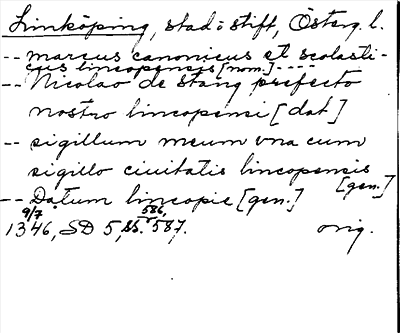 Linköping, stad o stift, Österg. l.
-- marcus canonicus et scolasti-
cus lincopensis [nom.] - - -
-- Nicolao de stang prefecto
nostro lincopensi [dat]
-- sigillum meum vna cum
sigillo ciuitatis lincopensis
[gen.]
-- Datum lincopie [gen.]
9/7 586,
1346, SD 5, ss. 587. orig.